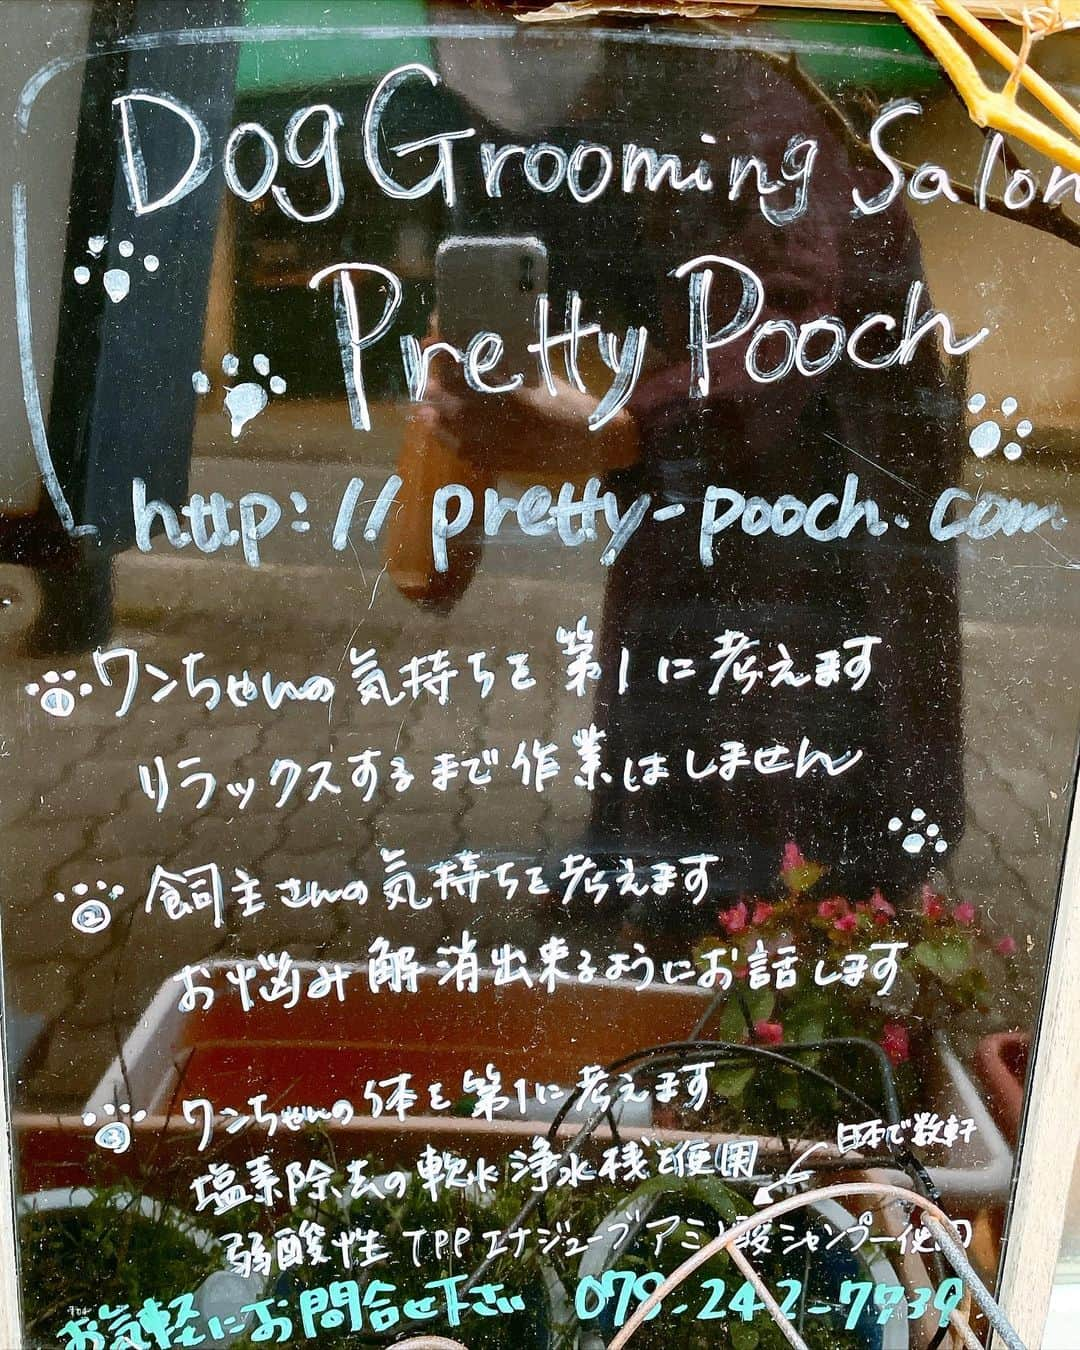 Dog Grooming Salon
Pretty Pooch
http://pretty-pooch.com
① ワンちゃんの気持ちを第1に考えます
リラックスするまで作業はしません
② 飼主さんの気持ちを考えます
お悩み解消出来るようにお話します
③ ワンちゃんの体を第1に考えます
日本で数軒
塩素除去の軟水浄水機を使用
弱酸性TPPエナジューブアミノ酸シャンプー使用
お気軽にお問合せ下さい 079-242-7739